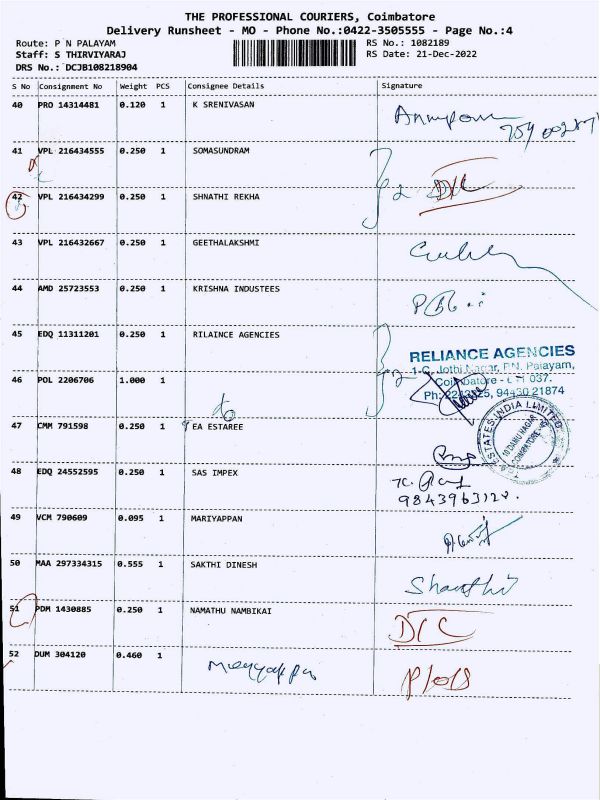 THE PROFESSIONAL COURIERS, Coimbatore
Delivery Runsheet - MO - Phone No.:0422-3505555 - Page No.:4
Route: P N PALAYAM
RS No.: 1082189
Staff: S THIRVIYARAJ
RS Date: 21-Dec-2022
DRS No.: DCJB108218904
S No Consignment No Weight PCS Consignee Details Signature
40 PRO 14314481 0.120 1 K SRENIVASAN
41 VPL 216434555 0.250 1 SOMASUNDRAM
42 VPL 216434299 0.250 1 SHNATHI REKHA 2 D/C
43 VPL 216432667 0.250 1 GEETHALAKSHMI
44 AMD 25723553 0.250 1 KRISHNA INDUSTEES
45 EDQ 11311201 0.250 1 RILAINCE AGENCIES
RELIANCE AGENCIES
1-C, Jothi Nagar, P.N. Palayam,
46 POL 2206706 1.000 1 2 Coimbatore - 037.
Ph: 94430 21874
47 CMM 791598 0.250 1 EA ESTAREE
STATES INDIA LIMITED
COIMBATORE
48 EDQ 24552595 0.250 1 SAS IMPEX
9843963122.
49 VCM 790609 0.095 1 MARIYAPPAN
50 MAA 297334315 0.555 1 SAKTHI DINESH Shanthi
51 PDM 1430885 0.250 1 NAMATHU NAMBIKAI D/C
52 DUM 304120 0.460 1